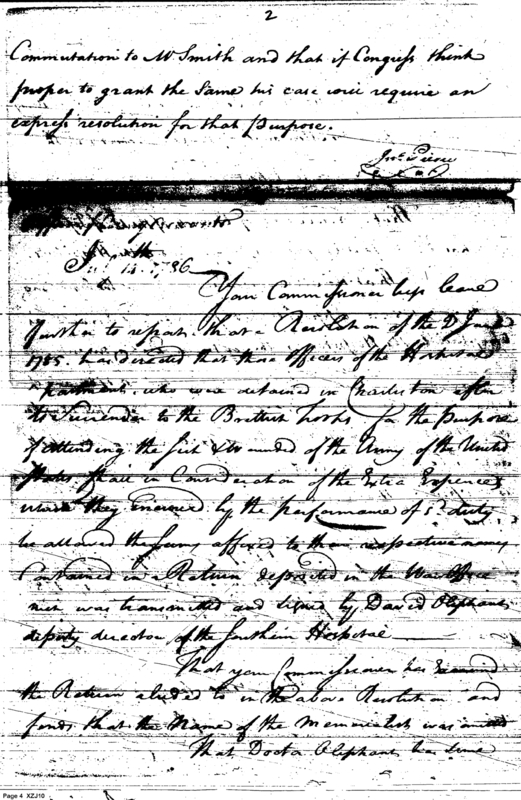 2
Commutation to Mr Smith and that if Congress think
proper to grant the Same his case will require an
express resolution for that Purpose.
Jno. Pierce
Your Commissioner begs leave
further to report that a Resolution of the
1785 has directed that those officers of the Hospital
who were detained in Charleston after
its Surrender to the British troops for the Purpose
of attending the sick & wounded of the Army of the United
States shall in Consideration of the Extra Expences
which they incurred by the performance of sd. duty
be allowed the sums affixed to their respective names
Contained in a Return deposited in the War Office
was transmitted and signed by David Oliphant
deputy director of the Southern Hospital
That your Commissioner has
the Return aluded to in the above Resolution and
finds that the Name of the Memorialist was
That Doctor Oliphant has since
Page 4 XZJ10